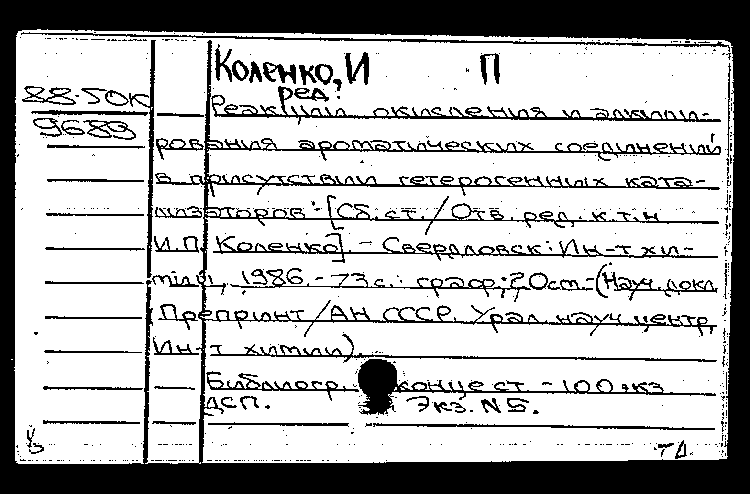 Коленко, И П
ред.
88-50К
9689
Реакции окисления и алкили-
рования ароматических соединений
в присутствии гетерогенных ката-
лизаторов: [Сб. ст. / Отв. ред. к.т.н
И.П. Коленко]. - Свердловск: Ин-т хи-
мии, 1986. - 73 с.: граф; 20 см. - (Науч. докл
Препринт / АН СССР. Урал. науч. центр,
Ин-т химии).
Библиогр. конце ст. - 100 экз
ДСП. Экз. N 5.